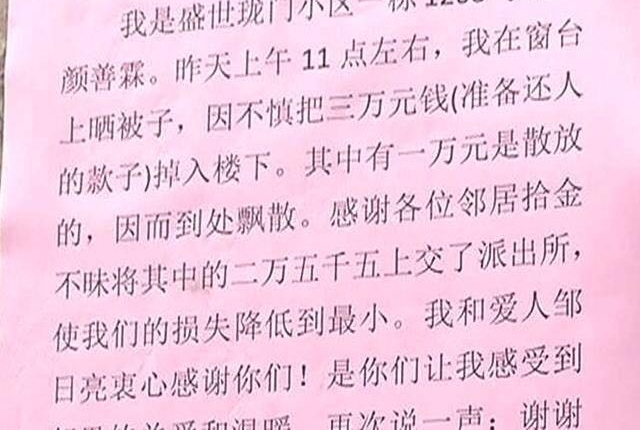 我是盛世珑门小区一栋
颜善霖。昨天上午 11 点左右，我在窗台
上晒被子，因不慎把三万元钱(准备还人
的款子)掉入楼下。其中有一万元是散放
的，因而到处飘散。感谢各位邻居拾金
不昧将其中的二万五千五上交了派出所，
使我们的损失降低到最小。我和爱人邹
日亮衷心感谢你们！是你们让我感受到
和温暖 再次说一声：谢谢